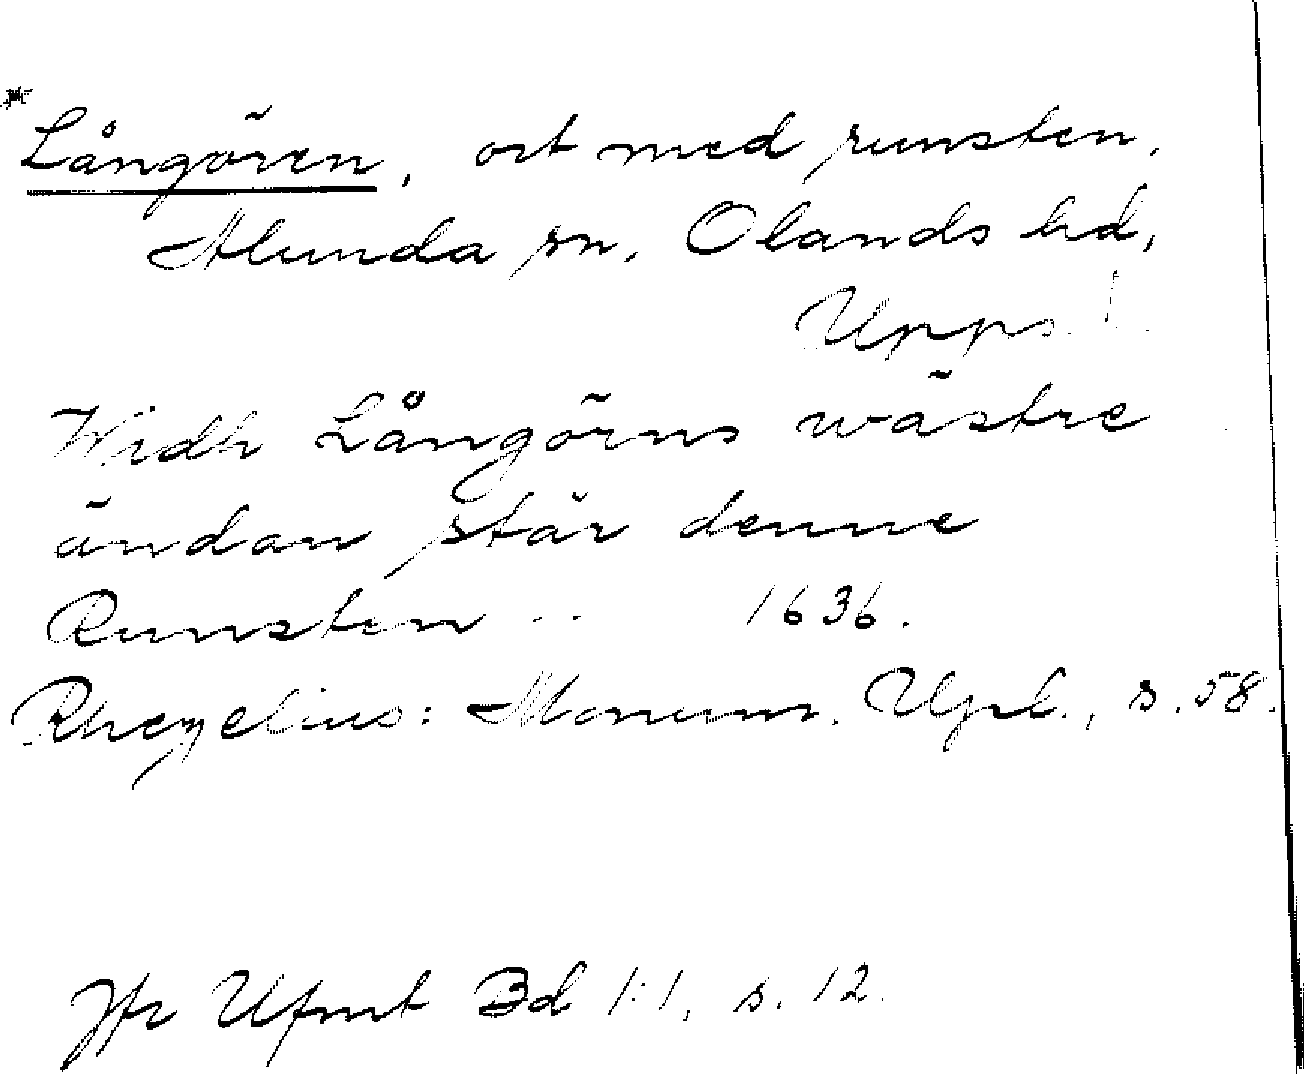 * Långören, ort med runsten,
Alunda sn, Olands hd,
Upps. l.
Widh Långörns wästre
ändan står denne
Runsten .. 1636.
Rhezelius: Monum. Upl., s. 58.
Jfr Ufmt Bd 1:1, s. 12.